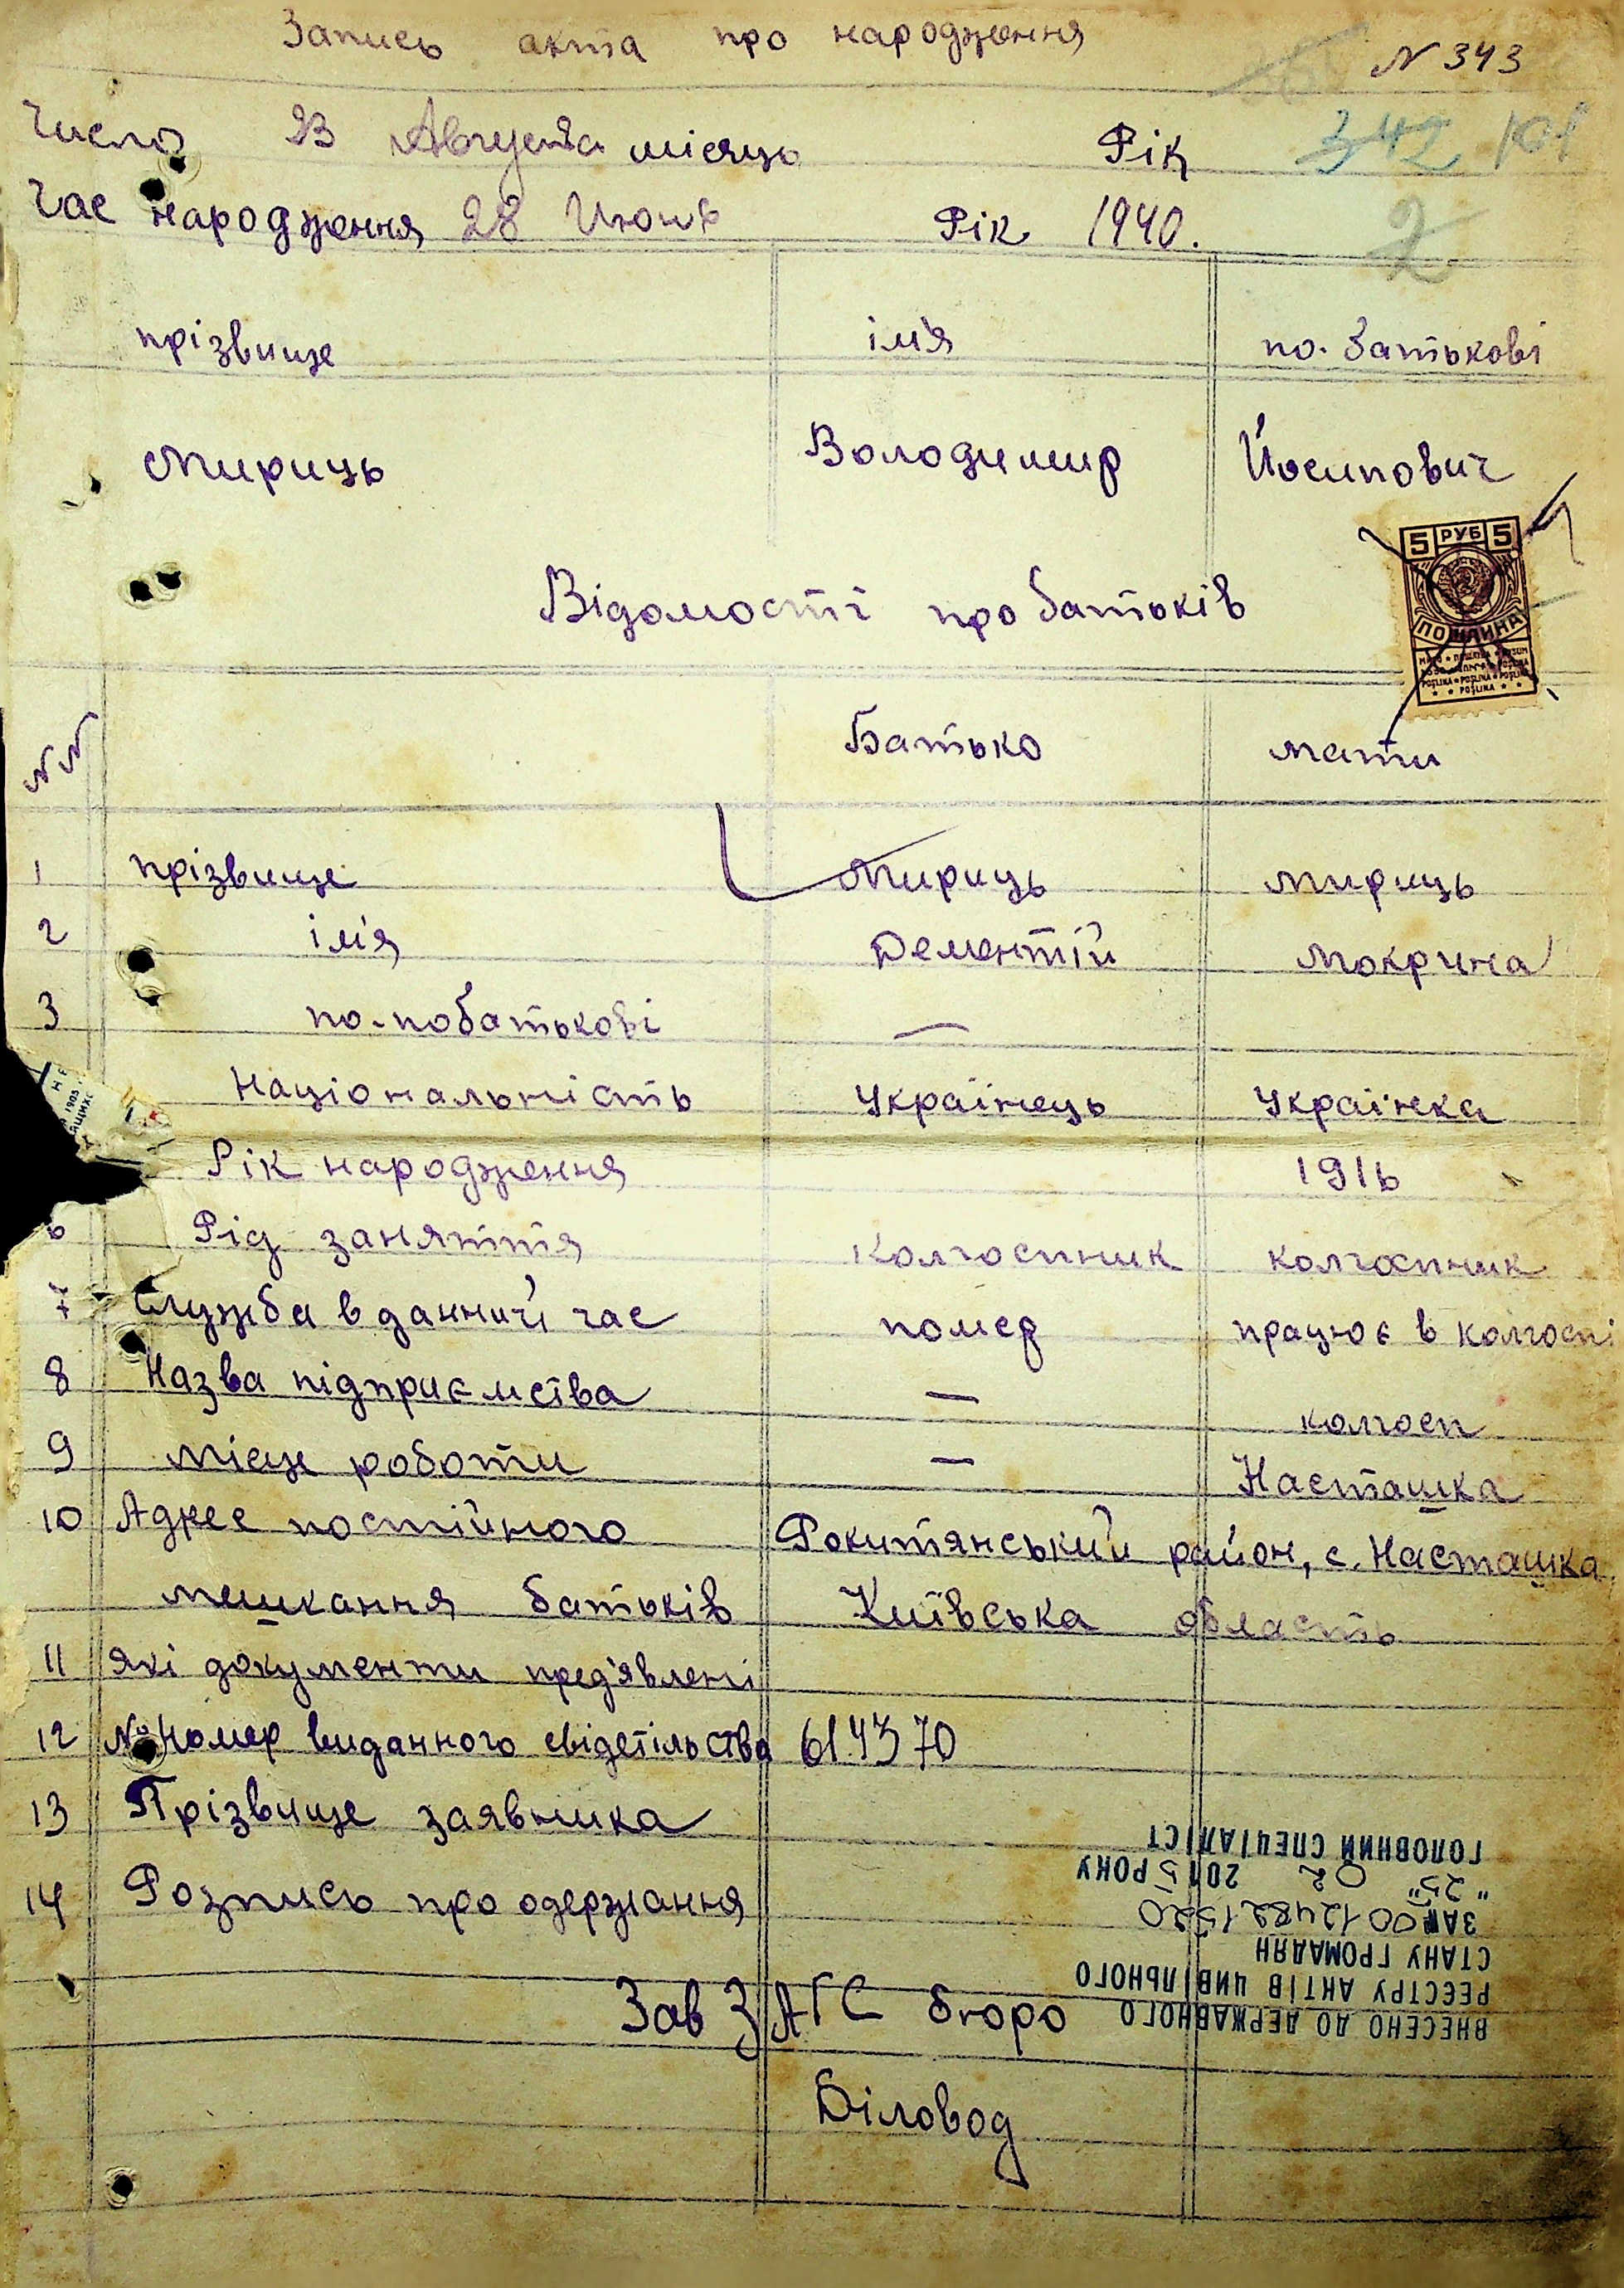 Запись акта про народження
N 343
Число 23 Августа місяць Рік
342
Час народження 28 Июнь Рік 1940.
2
прізвище ім'я по-батькові
Мириць Володимир Йосипович
5 РУБ 5
ПОШЛИНА
POSLINA * POSLINA * POSLINA
* * POSLINA * *
Відомості про батьків
NN Батько мати
1 прізвище Мириць Мириць
2 ім'я Дементій Мокрина
3 по-побатькові —
Національність Українець Українка
Рік народження 1916
6 Рід заняття Колгоспник колгоспник
7 Служба в данний час помер працює в колгоспі
8 Назва підприємства — колгосп
9 місце роботи — Насташка
10 Адрес постійного Рокитянський район, с. Насташка.
мешкання батьків Київська область
11 які документи пред'явлені
12 № Номер виданного свідетільства 614370
13 Прізвище заявника
14 Розпись про одержання
Зав ЗАГС бюро
Діловод
ВНЕСЕНО ДО ДЕРЖАВНОГО
РЕЄСТРУ АКТІВ ЦИВІЛЬНОГО
СТАНУ ГРОМАДЯН
ЗА № 00124821520
"25" 02 2015 РОКУ
ГОЛОВНИЙ СПЕЦІАЛІСТ